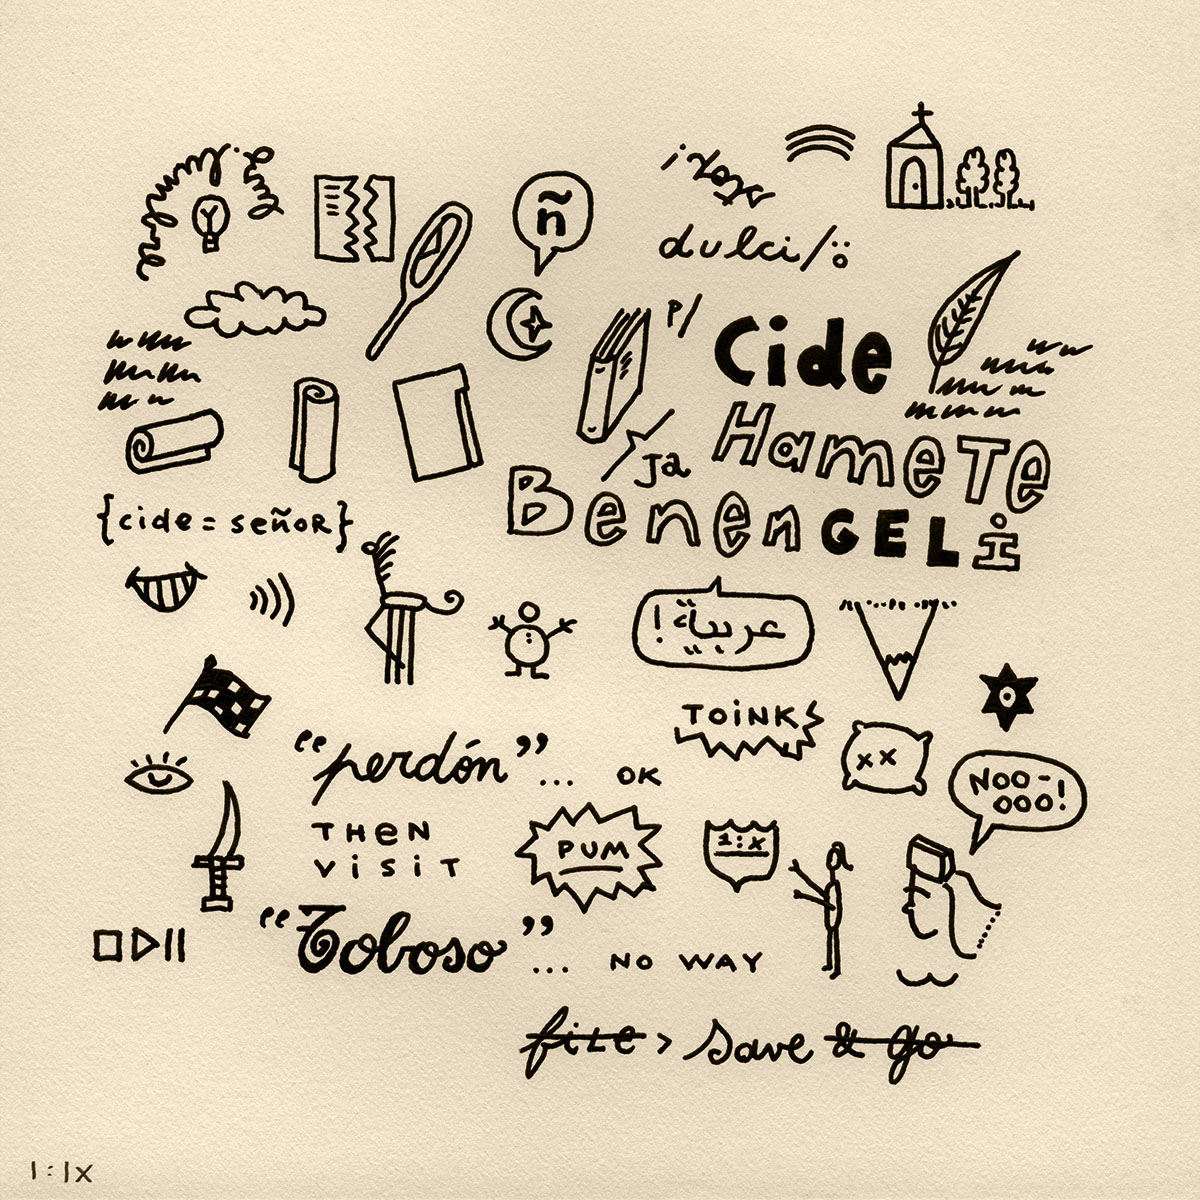 ñ
dulci/
p/
Cide
HameTe
/ Ja
BenenGELi
{cide = señoR}
عربية!
TOiNK
"perdón"... OK
NOO-
OOO!
THeN
ViSiT
PUM
1:X
"Toboso"... NO WAY
file > save & go
1:1x